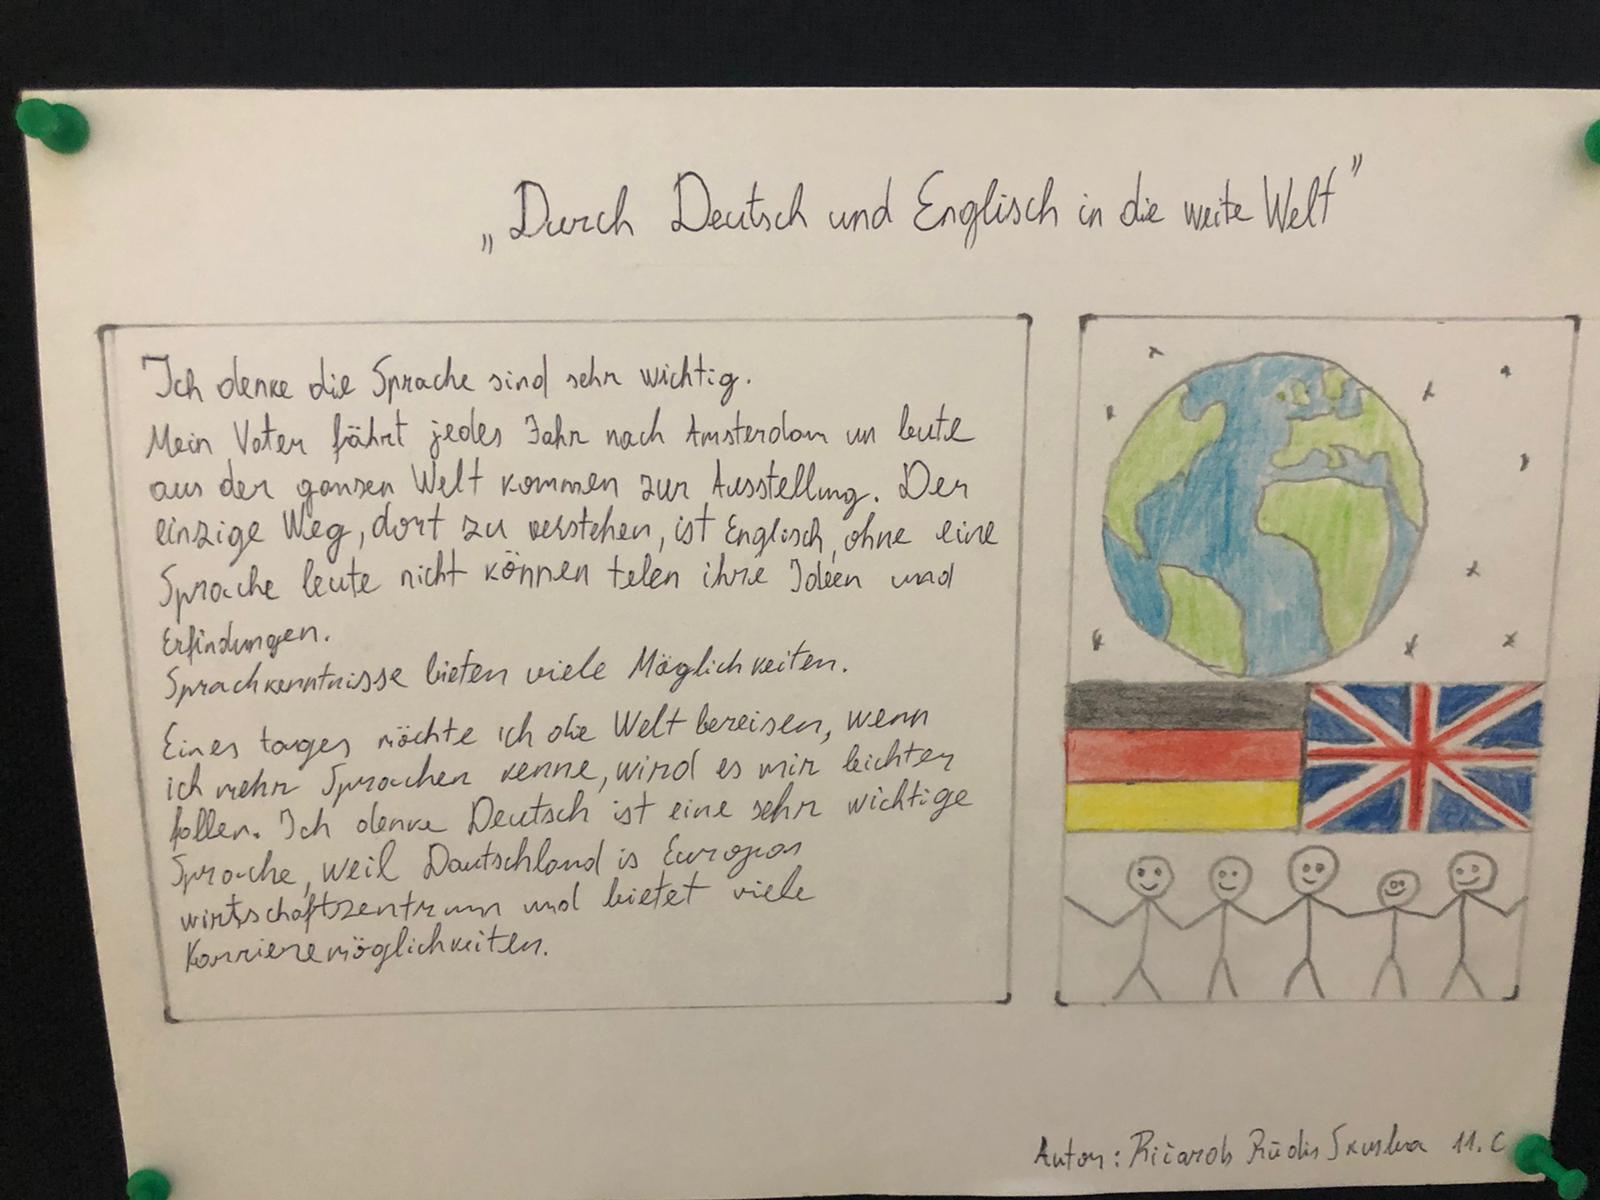 „Durch Deutsch und Englisch in die weite Welt"
Ich denke die Sprache sind sehr wichtig.
Mein Vater fährt jedes Jahr nach Amsterdam un leute
aus der ganzen Welt kommen zur Ausstellung. Der
einzige Weg, dort zu verstehen, ist Englisch, ohne eine
Sprache leute nicht können telen ihre Ideen und
Erfindungen.
Sprachkenntnisse bieten viele Möglichkeiten.
Eines tages möchte ich die Welt bereisen, wenn
ich mehr Sprachen kenne, wird es mir leichter
fallen. Ich denke Deutsch ist eine sehr wichtige
Sprache, weil Dautschland is Europas
wirtschaftszentrum und bietet viele
Karrieremöglichkeiten.
Autor: Ričards Rūdis 11.c